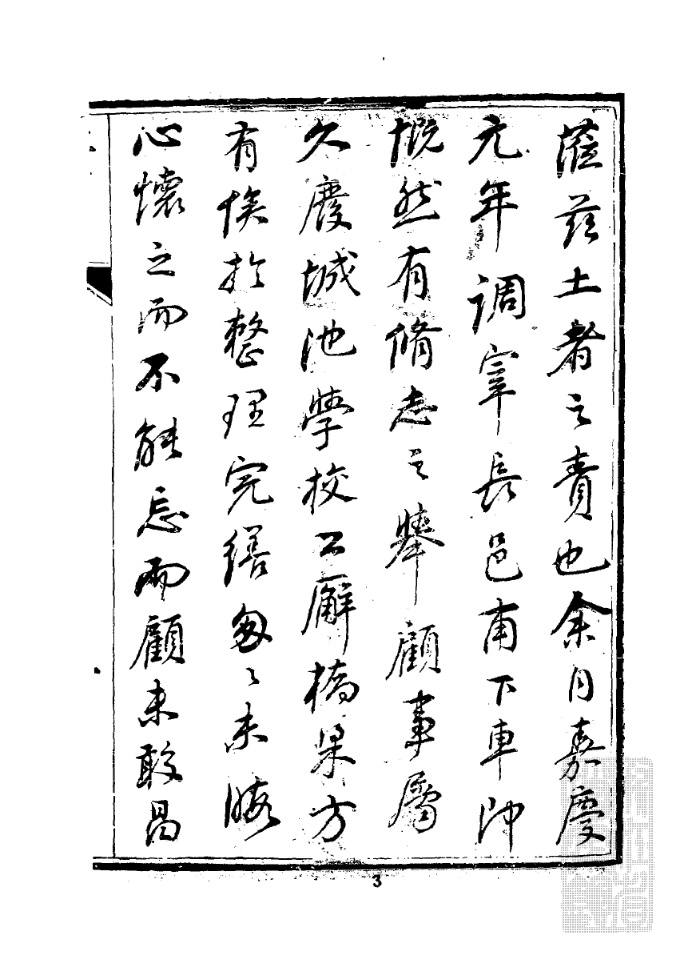 蒞茲土者之責也余自嘉慶
元年調宰長邑甫下車即
慨然有脩志之舉顧事屬
久廢城池學校公廨橋梁方
有俟於整理完繕匆匆未暇
心懷之而不能忘而顧未敢曷
3